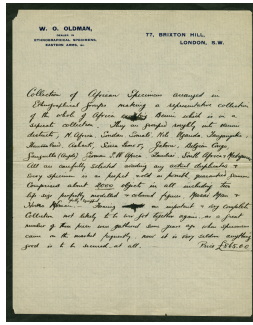 W. O. OLDMAN,
DEALER IN
ETHNOGRAPHICAL SPECIMENS,
EASTERN ARMS, &c.
77, BRIXTON HILL,
LONDON, S.W.
Collection of African Specimens arranged in
Ethnographical Groups making a representative collection
of the whole of Africa Benin which is in a
separate collection. They are grouped roughly into
districts, N. Africa, Soudan, Somali, Nile Uganda Tanganyika
Ashanti, Sierra Leone, Gaboon, Belgian Congo
German S.W. Africa South Africa
All are carefully selected avoiding any actual duplicates &
every specimen is in perfect & sold as, guaranteed genuine
Comprised about 2000 objects in all including two
life size perfectly modelled & coloured figures, Masai Man &
Woman. Forming an important & very complete
Collection not likely to be got together again as a great
number of these pieces were gathered some years ago when specimens
came on the market frequently, now it is very seldom anything
good is to be secured, at all. Price £